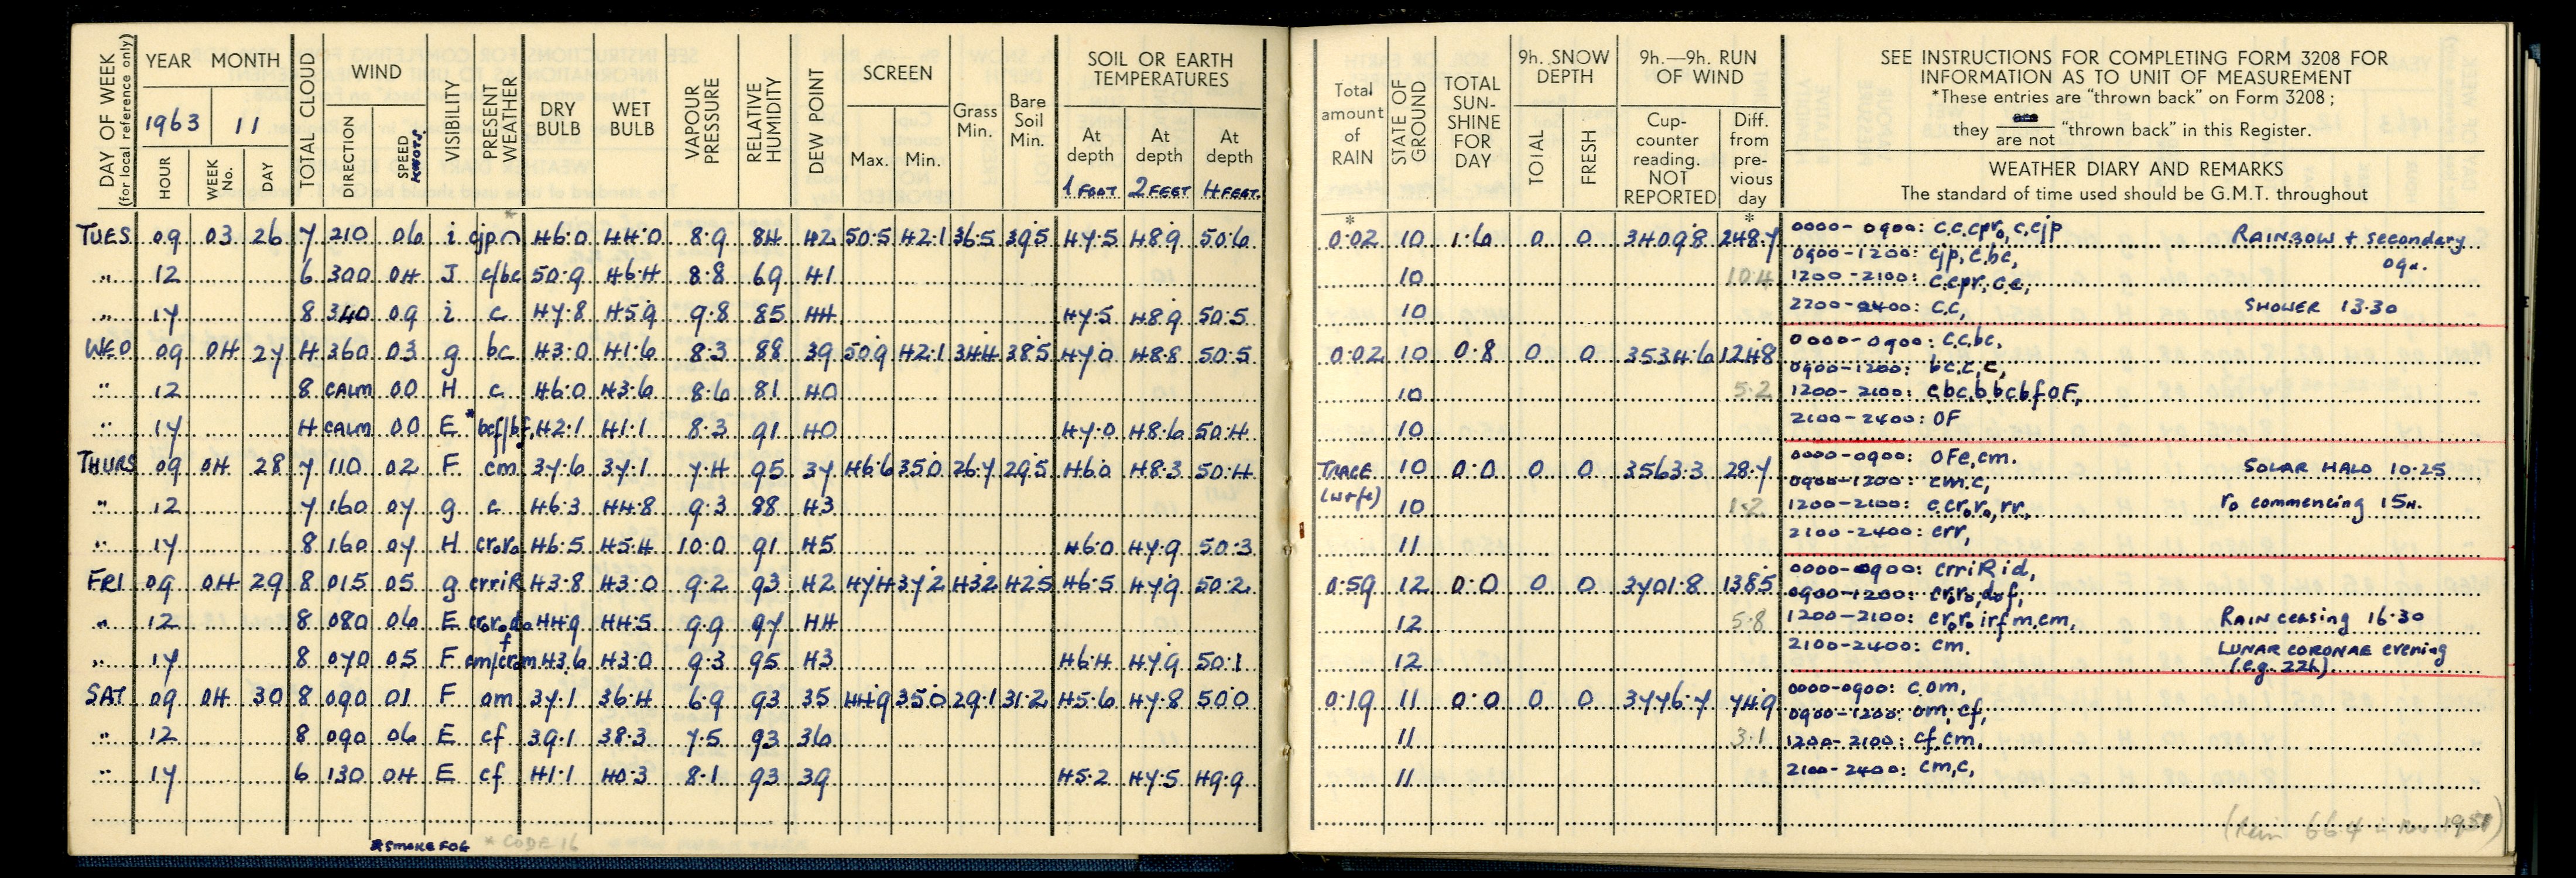 DAY OF WEEK (for local reference only) YEAR MONTH TOTAL CLOUD WIND VISIBILITY PRESENT WEATHER DRY BULB WET BULB VAPOUR PRESSURE RELATIVE HUMIDITY DEW POINT SCREEN Grass Min. Bare Soil Min. SOIL OR EARTH TEMPERATURES
1963 11
HOUR WEEK No. DAY DIRECTION SPEED KNOTS. Max. Min. At depth 1 FOOT At depth 2 FEET At depth 4 FEET.
TUES 09 03 26 7 210 06 i cjp 46.0 44.0 8.9 84 42 50.5 42.1 36.5 39.5 47.5 48.9 50.6
" 12 6 300 04 J c/bc 50.9 46.4 8.8 69 41
" 17 8 340 09 i c 47.8 45.9 9.8 85 44 47.5 48.9 50.5
WED 09 04 27 4 360 03 g bc 43.0 41.6 8.3 88 39 50.9 42.1 34.4 38.5 47.0 48.8 50.5
" 12 8 CALM 00 H c 46.0 43.6 8.6 81 40
" 17 4 CALM 00 E * bcf/bf 42.1 41.1 8.3 91 40 47.0 48.6 50.4
THURS 09 04 28 7 110 02 F cm 37.6 37.1 7.4 95 37 46.6 35.0 26.7 29.5 46.0 48.3 50.4
" 12 7 160 07 g c 46.3 44.8 9.3 88 43
" 17 8 160 07 H cr₀r₀ 46.5 45.4 10.0 91 45 46.0 47.9 50.3
FRI 09 04 29 8 015 05 g crriR 43.8 43.0 9.2 93 42 47.4 37.2 43.2 42.5 46.5 47.9 50.2
" 12 8 080 06 E cr₀r₀d₀f 44.9 44.5 9.9 97 44
" 17 8 070 05 F cm/cr₀m 43.6 43.0 9.3 95 43 46.4 47.9 50.1
SAT 09 04 30 8 090 01 F om 37.1 36.4 6.9 93 35 44.9 35.0 29.1 31.2 45.6 47.8 50.0
" 12 8 090 06 E cf 39.1 38.3 7.5 93 36
" 17 6 130 04 E cf 41.1 40.3 8.1 93 39 45.2 47.5 49.9
* SMOKE FOG * CODE 16
Total amount of RAIN STATE OF GROUND TOTAL SUN-SHINE FOR DAY 9h. SNOW DEPTH TOTAL FRESH 9h.—9h. RUN OF WIND Cup-counter reading. NOT REPORTED Diff. from pre-vious day
SEE INSTRUCTIONS FOR COMPLETING FORM 3208 FOR
INFORMATION AS TO UNIT OF MEASUREMENT
*These entries are "thrown back" on Form 3208;
they are / are not "thrown back" in this Register.
WEATHER DIARY AND REMARKS
The standard of time used should be G.M.T. throughout
0.02 10 1.6 0 0 3409.8 248.7 0000-0900: c.c.cpr₀,c,cjp RAINBOW + secondary
0900-1200: cjp,c.bc, 09.
10 10.4 1200-2100: c.cpr,c.c,
10 2200-2400: c.c, SHOWER 13.30
0.02 10 0.8 0 0 3534.6 124.8 0000-0900: c,c,bc,
0900-1200: bc.c,c,
10 5.2 1200-2100: c,bc,b,bcbfOF,
10 2100-2400: OF
TRACE 10 0.0 0 0 3563.3 28.7 0000-0900: OFe,cm. SOLAR HALO 10.25
0900-1200: cm.c,
10 1.2 1200-2100: c.cr₀r₀,rr, r₀ commencing 15H.
11 2100-2400: crr,
0.59 12 0.0 0 0 3701.8 138.5 0000-0900: crriRid,
0900-1200: cr₀r₀,d₀f,
12 5.8 1200-2100: cr₀r₀irfm,cm, RAIN ceasing 16.30
12 2100-2400: cm. LUNAR CORONAE evening
(e.g. 22h)
0.19 11 0.0 0 0 3776.7 74.9 0000-0900: c om,
0900-1200: om,cf,
11 3.1 1200-2100: cf,cm,
11 2100-2400: cm,c,
(Rain 6.64 in Nov 1951)